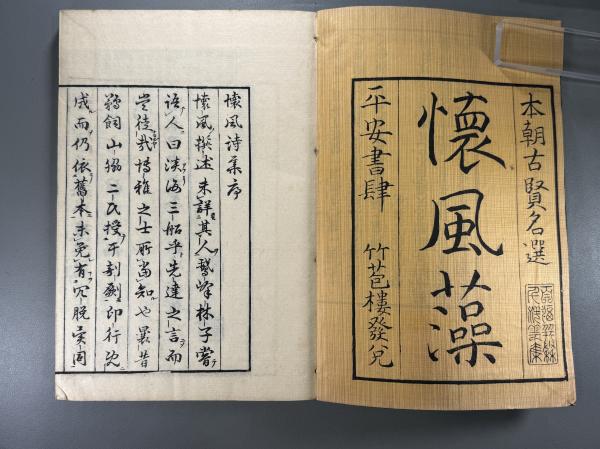 本朝古賢名選
懷風藻
平安書肆　竹苞樓發兌
懷風詩集序
懷風撰述未詳其人鵞峰林子嘗
語人曰淡海三船乎先達之言而
豈徒哉博雅之士所當知也曩昔
鵜飼山脇二氏授于剞劂印行既
成而仍依舊本未免有冗脱異同